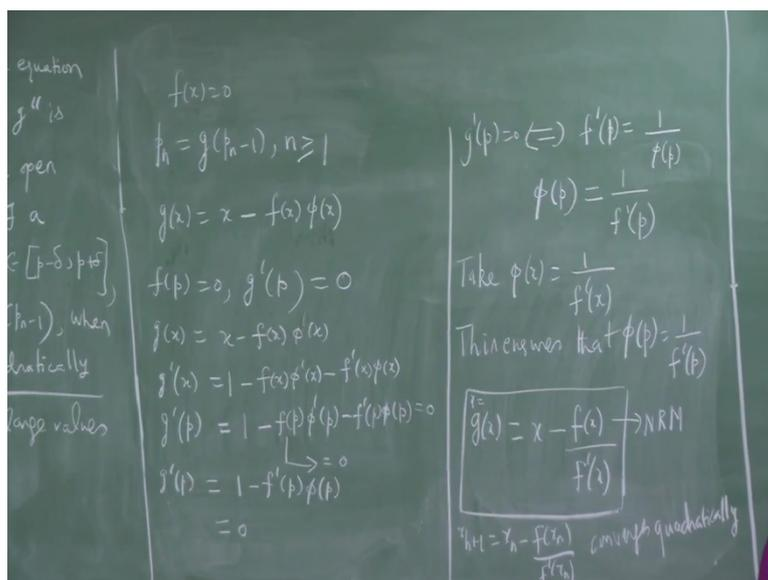 equation
g'' is
open
a
∈ [p-δ, p+δ],
(pn-1), when
dratically
large values
f(x)=0
pn = g(pn-1), n≥1
g(x) = x - f(x) φ(x)
f(p)=0, g'(p) = 0
g(x) = x - f(x) φ'(x)
g'(x) = 1 - f(x)φ'(x) - f'(x)φ(x)
g'(p) = 1 - f(p)φ'(p) - f'(p)φ(p) = 0
↳ = 0
g'(p) = 1 - f'(p) φ(p)
= 0
g'(p)=0 (=) f'(p) = 1/φ(p)
φ(p) = 1/f'(p)
Take φ(x) = 1/f'(x)
This ensures that φ(p) = 1/f'(p)
g(x) = x - f(x)/f'(x) → NRM
xn+1 = xn - f(xn)/f'(xn) converges quadratically